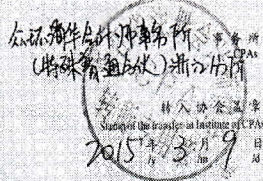 众环海华会计师事务所
(特殊普通合伙)浙江分所
事务所
CPAs
转入协会盖章
Stamp of the transfer-in Institute of CPAs
2015年 3月 9日
/y /m /d